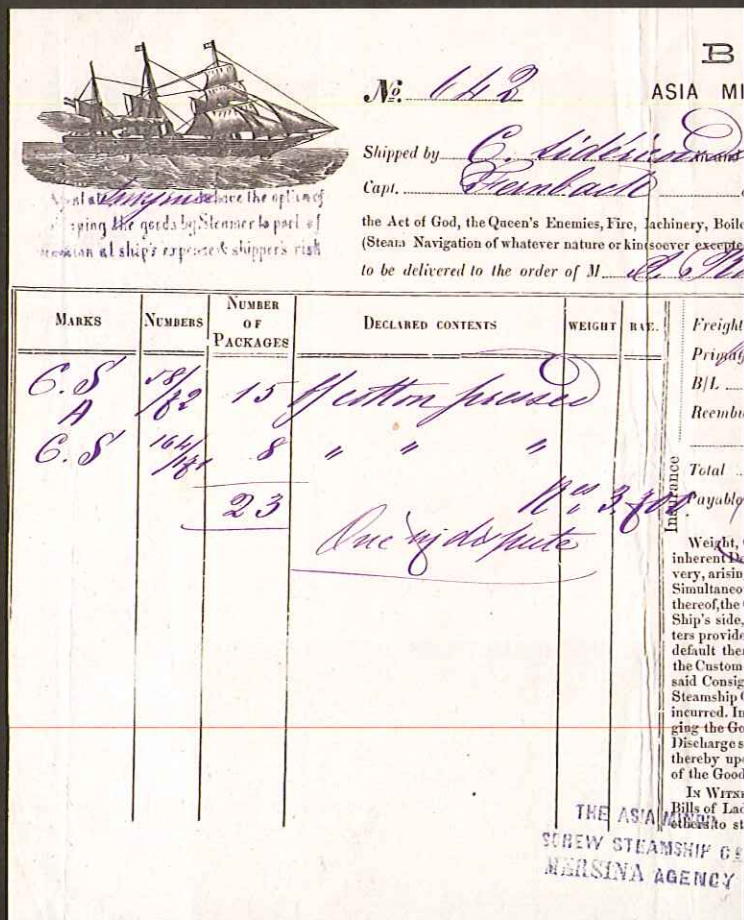 B
Nº. 642
ASIA MI
Shipped by C.
Capt. Fernbach
Smyrna have the option of
ping the goods by Steamer to port of
at ship's expense & shipper's risk
the Act of God, the Queen's Enemies, Fire, achinery, Boile
(Steam Navigation of whatever nature or kin soever excepte
to be delivered to the order of M
MARKS NUMBERS NUMBER OF PACKAGES DECLARED CONTENTS WEIGHT RAT.
C.S 58/72 15 B/ cotton pressed
A
C.S 164/171 8 " " "
23 3.700
One in dispute
Freight
Primag
B/L
Reembu
Total
Insurance
Payable
Weight,
inherent De
very, arisin
Simultaneo
thereof, the
Ship's side,
ters provide
default ther
the Custom
said Consig
Steamship C
incurred. In
ging the Go
Discharge s
thereby upo
of the Good
IN WITNE
Bills of Lad
others to st
THE ASIA MINOR
SCREW STEAMSHIP Co
MERSINA AGENCY